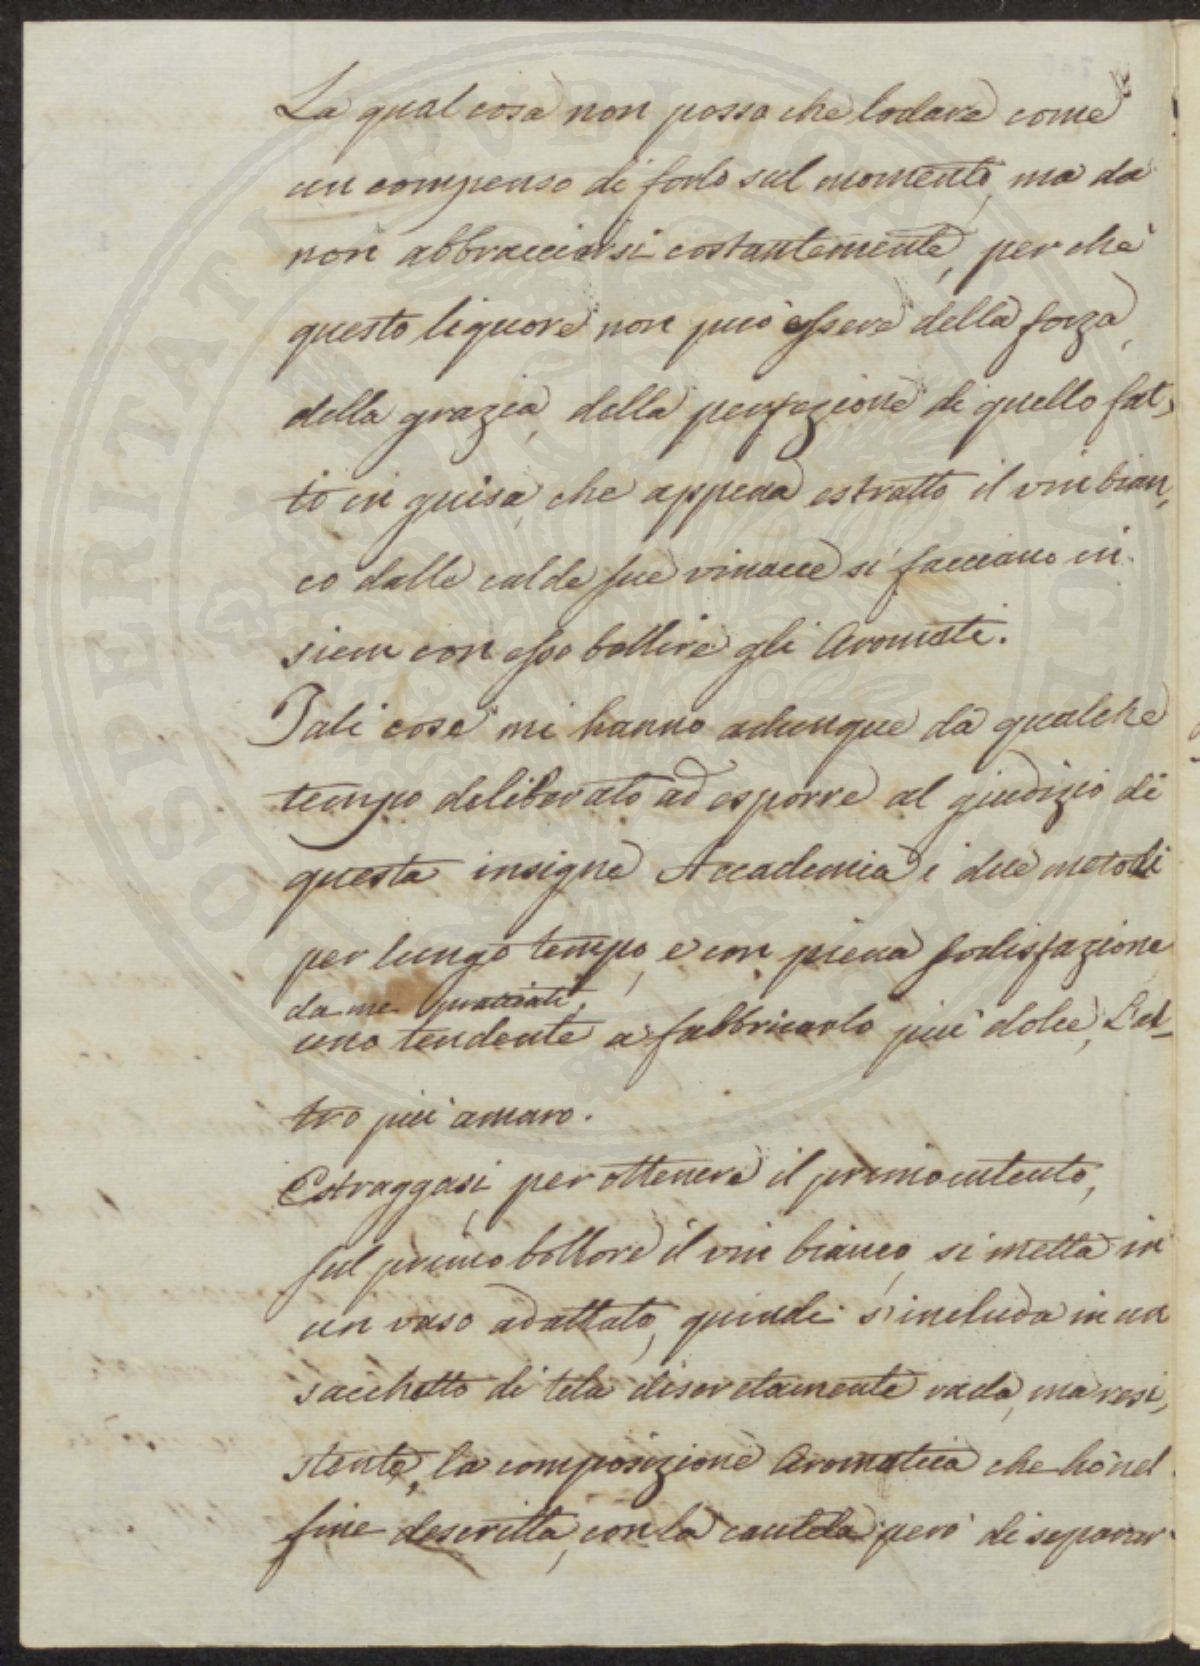 La qual cosa non posso che lodare come
un compenso di farlo sul momento, ma da
non abbracciarsi costantemente, perchè
questo liquore non può essere della forza,
della grazia, della perfezione di quello fat,
to in guisa, che appena estratto il vin bian,
co dalle calde sue vinacce si facciano in
siem con esso bollire gli Aromati.
Tali cose mi hanno adunque da qualche
tempo deliberato ad esporre al giudizio di
questa insigne Accademia i due metodi
per lungo tempo, e con piena sodisfazione
da me praticati,
uno tendente a fabbricarlo più dolce, l'al-
tro più amaro.
Estraggasi, per ottenere il primo intento,
sul primo bollore il vin bianco, si metta in
un vaso adattato, quindi s'includa in un
sacchetto di tela discretamente rada, ma resi,
stente, la composizione Aromatica che hò nel
fine descritta, con la cautela però di separar